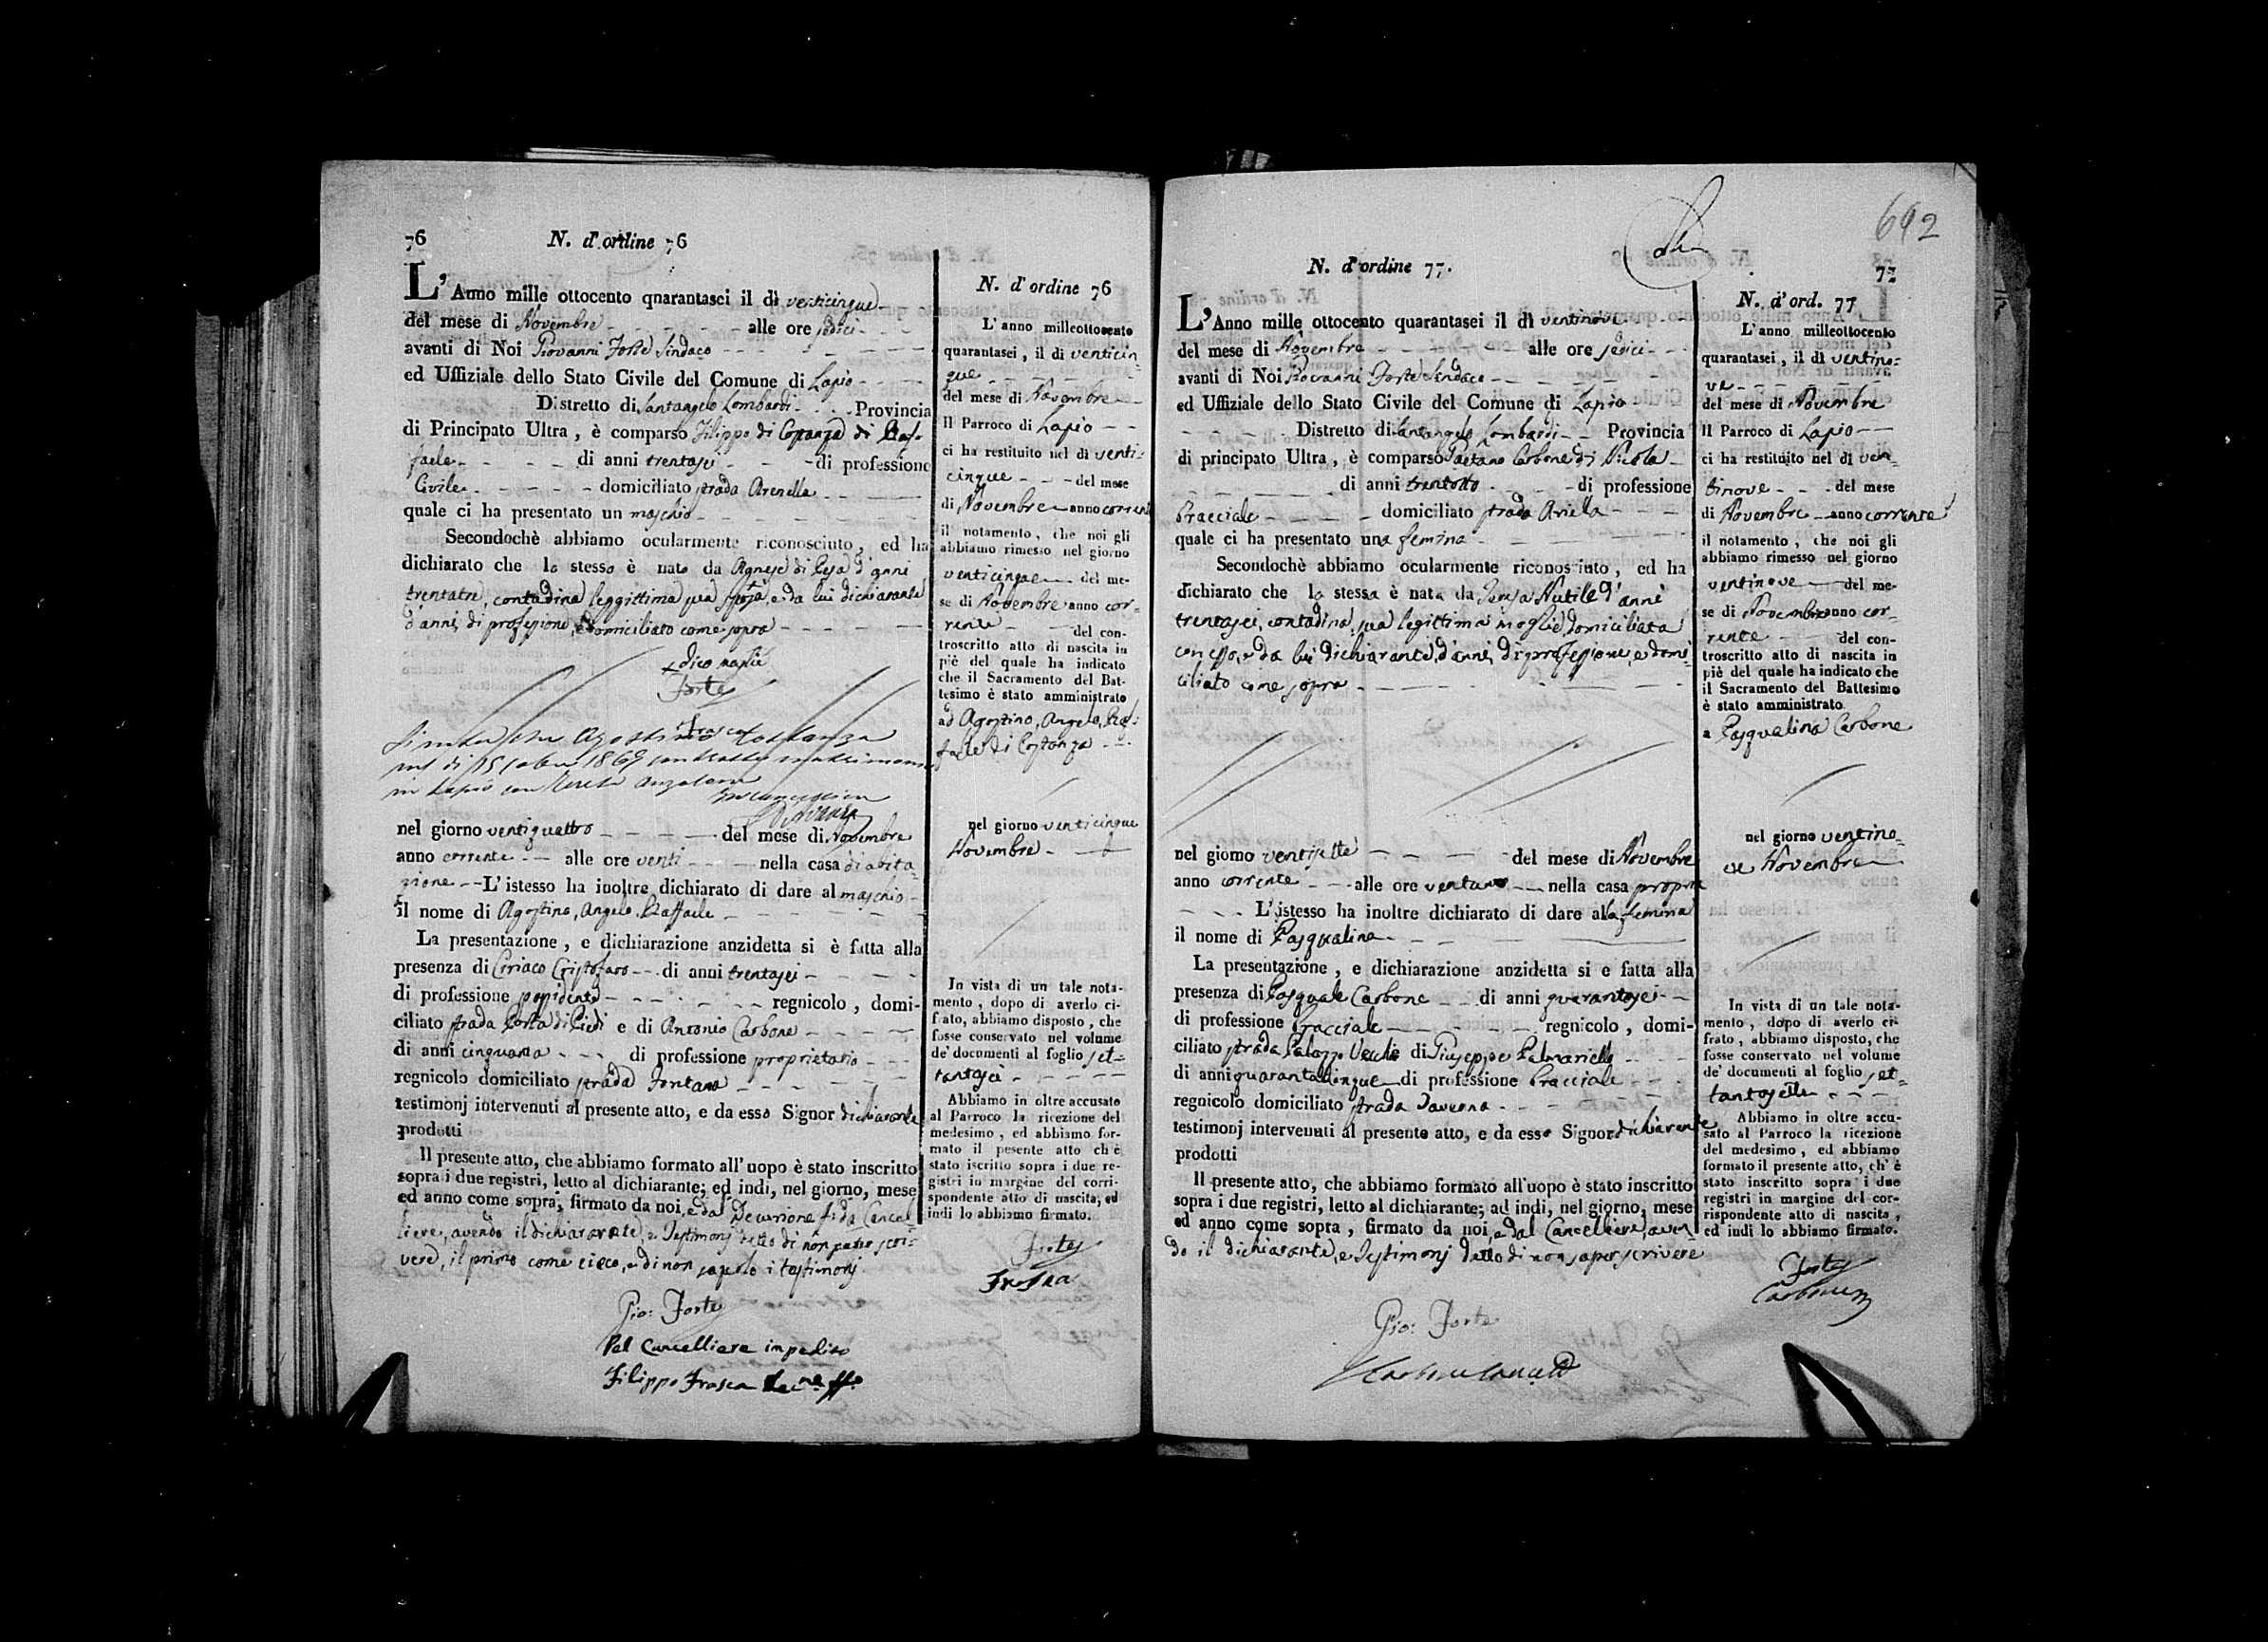 76 N. d'ordine 76
L'Anno mille ottocento qnarantasei il dì venticinque
del mese di Novembre alle ore sedici
avanti di Noi Giovanni Forte Sindaco
ed Uffiziale dello Stato Civile del Comune di Lapio
Distretto di Santangelo Lombardi Provincia
di Principato Ultra, è comparso Filippo di Costanza di Raf-
faele di anni trentasei di professione
Civile domiciliato strada Arenella
quale ci ha presentato un maschio
Secondochè abbiamo ocularmente riconosciuto, ed ha
dichiarato che lo stesso è nato da Agnese di d'anni
trentatre, contadina leggittima sua sposa, e da lui dichiarante
d'anni, di professione, e domiciliato come sopra
+ dico moglie
Forte
Agostino Costanza
nel dì 15 1869 contratto matrimonio
in Lapio con
nel giorno ventiquattro del mese di Novembre
anno corrente alle ore venti nella casa di abita-
zione L'istesso ha inoltre dichiarato di dare al maschio
il nome di Agostino, Angelo, Raffaele
La presentazione, e dichiarazione anzidetta si è fatta alla
presenza di Ciriaco Cristofaro di anni trentasei
di professione possidente regnicolo, domi-
ciliato strada Porta di Piedi e di Antonio Carbone
di anni cinquanta di professione proprietario
regnicolo domiciliato strada Fontana
testimonj intervenuti al presente atto, e da esso Signor dichiarante
prodotti
Il presente atto, che abbiamo formato all'uopo è stato inscritto
sopra i due registri, letto al dichiarante; ed indi, nel giorno, mese
ed anno come sopra, firmato da noi, e dal Decurione ff. da Cancel-
liere, avendo il dichiarante, e Testimonj detto di non poter scri-
vere, il primo come cieco, e di non saperlo i testimonj
Gio: Forte
Pel Cancelliere impedito
Filippo Frasca
N. d'ordine 76
L'anno milleottocento
quarantasei, il dì venticin
que
del mese di Novembre
Il Parroco di Lapio
ci ha restituito nel dì venti-
cinque del mese
di Novembre anno corrente
il notamento, che noi gli
abbiamo rimesso nel giorno
venticinque del me-
se di Novembre anno cor-
rente del con-
troscritto atto di nascita in
piè del quale ha indicato
che il Sacramento del Bat-
tesimo è stato amministrato
ad Agostino, Angelo, Raf-
faele di Costanza
nel giorno venticinque
Novembre
In vista di un tale nota-
mento, dopo di averlo ci-
frato, abbiamo disposto, che
fosse conservato nel volume
de' documenti al foglio set-
tantasei
Abbiamo in oltre accusato
al Parroco la ricezione del
medesimo, ed abbiamo for-
mato il pesente atto ch'è
stato iscritto sopra i due re-
gistri in margine del corri-
spondente atto di nascita, ed
indi lo abbiamo firmato.
Forte
Frasca
692
N. d'ordine 77. 77
L'Anno mille ottocento quarantasei il dì ventinove
del mese di Novembre alle ore sedici
avanti di Noi Giovanni Forte Sindaco
ed Uffiziale dello Stato Civile del Comune di Lapio
Distretto di Santangelo Lombardi Provincia
di principato Ultra, è comparso Gaetano Carbone di Nicola
di anni trentotto di professione
Bracciale domiciliato strada Ariella
quale ci ha presentato una femina
Secondochè abbiamo ocularmente riconosciuto, ed ha
dichiarato che la stessa è nata da Teresa Nutile d'anni
trentasei, contadina, sua legittima moglie, domiciliata
con esso, e da lui dichiarante, d'anni, di professione, e domi-
ciliato come sopra
nel giorno ventisette del mese di Novembre
anno corrente alle ore ventuno nella casa propria
L'istesso ha inoltre dichiarato di dare alla femina
il nome di Pasqualina
La presentazione, e dichiarazione anzidetta si e fatta alla
presenza di Pasquale Carbone di anni quarantasei
di professione Bracciale regnicolo, domi-
ciliato strada Palazzo Vecchio di Giuseppe Palmariello
di anni quarantacinque di professione Bracciale
regnicolo domiciliato strada Taverna
testimonj intervenuti al presente atto, e da esso Signor dichiarante
prodotti
Il presente atto, che abbiamo formato all'uopo è stato inscritto
sopra i due registri, letto al dichiarante; ad indi, nel giorno, mese
ed anno come sopra, firmato da noi, e dal Cancelliere, aven
do il dichiarante, e Testimonj detto di non saper scrivere
Gio: Forte
Carbone
N. d'ord. 77
L'anno milleottocento
quarantasei, il dì ventino-
ve
del mese di Novembre
Il Parroco di Lapio
ci ha restituito nel dì ven-
tinove del mese
di Novembre anno corrente
il notamento, che noi gli
abbiamo rimesso nel giorno
ventinove del me-
se di Novembre anno cor-
rente del con-
troscritto atto di nascita in
piè del quale ha indicato che
il Sacramento del Battesimo
è stato amministrato
a Pasqualina Carbone
nel giorno ventino-
ve Novembre
In vista di un tale nota-
mento, dopo di averlo ci-
frato, abbiamo disposto, che
fosse conservato nel volume
de' documenti al foglio set-
tantasette
Abbiamo in oltre accu-
sato al Parroco la ricezione
del medesimo, ed abbiamo
formato il presente atto, ch'è
stato inscritto sopra i due
registri in margine del cor-
rispondente atto di nascita,
ed indi lo abbiamo firmato.
Forte
Carbone